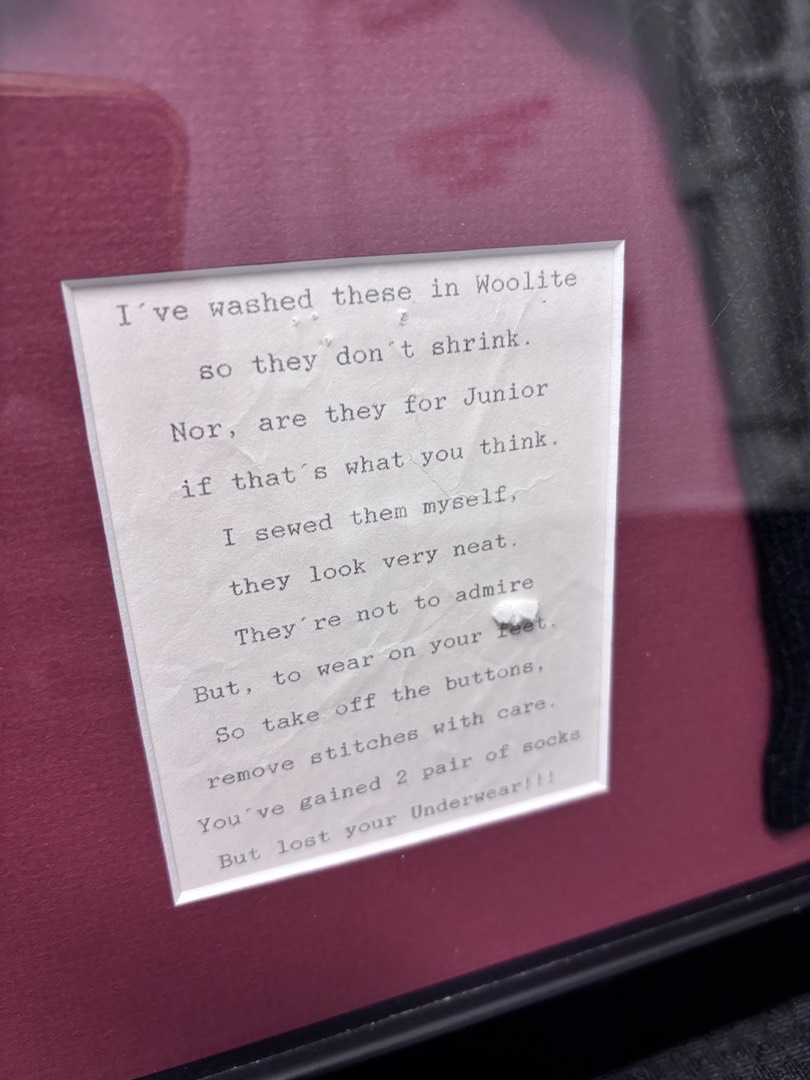 I´ve washed these in Woolite
so they don´t shrink.
Nor, are they for Junior
if that´s what you think.
I sewed them myself,
they look very neat.
They´re not to admire
But, to wear on your feet.
So take off the buttons,
remove stitches with care.
You´ve gained 2 pair of socks
But lost your Underwear!!!